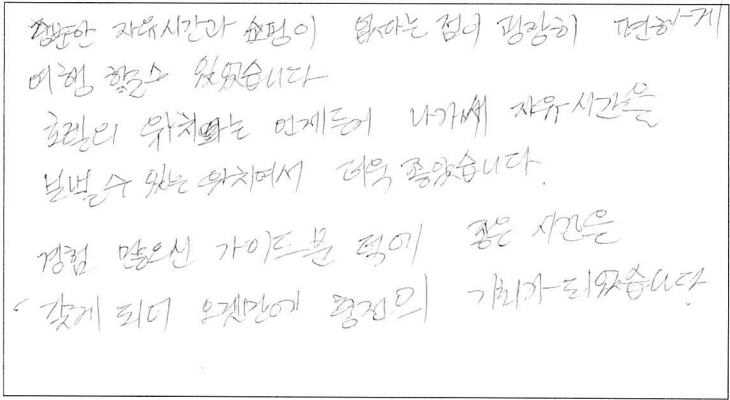 충분한 자유시간과 쇼핑이 없다는 점이 굉장히 편하게
여행 할수 있었습니다
호텔의 위치 는 언제든이 나가써 자유시간을
보낼수 있는 위치여서 더욱 좋았습니다.
경험 많으신 가이드분 덕에 좋은 시간을
갖게 되어 오랫만에 의 기회가 되었습니다.